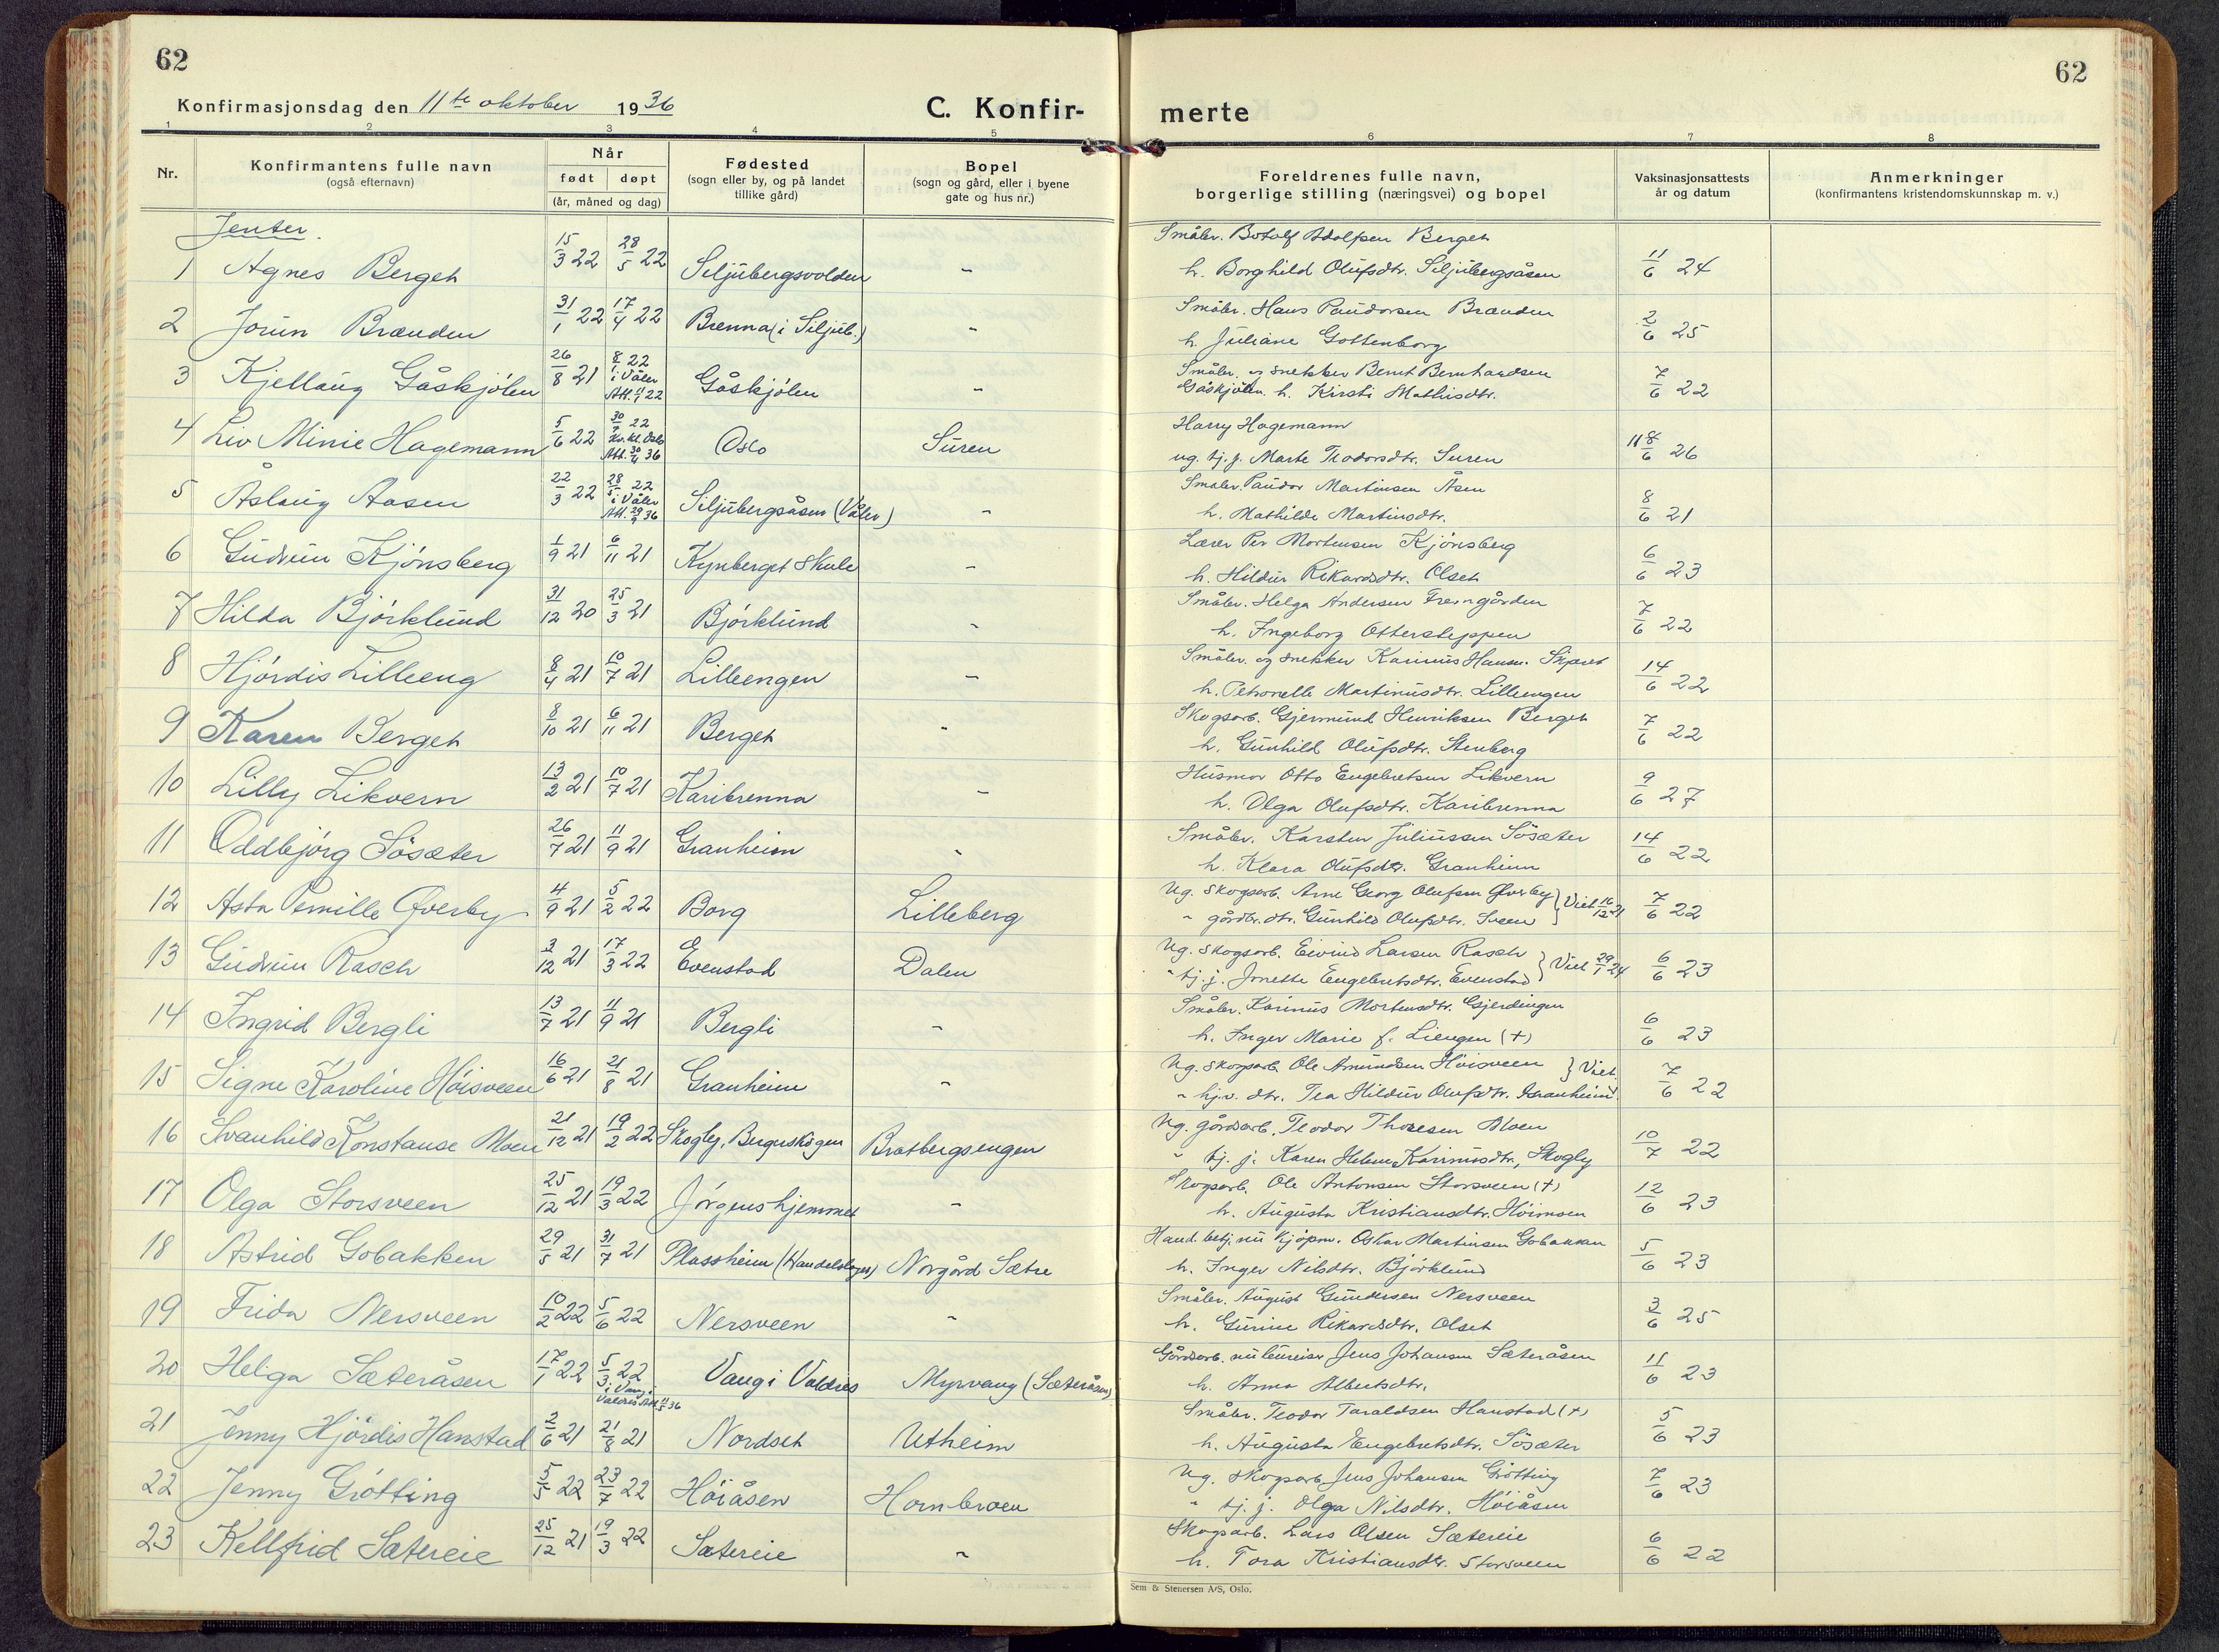 62
Konfirmasjonsdag den 11te oktober 1936
C. Konfir-
merte
62
1 2 3 4 5 6 7 8
Nr.
Konfirmantens fulle navn
(også efternavn)
Når
født døpt
(år, måned og dag)
Fødested
(sogn eller by, og på landet
tillike gård)
Bopel
(sogn og gård, eller i byene
gate og hus nr.)
Foreldrenes fulle navn,
borgerlige stilling (næringsvei) og bopel
Vaksinasjonsattests
år og datum
Anmerkninger
(konfirmantens kristendomskunnskap m. v.)
Jenter.
1 Agnes Berget 15/3 22 28/5 22 Siljubergsvolden -
Småbr. Botolf Adolfsen Berget
h. Borghild Olufsdtr. Siljubergsåsen 11/6 24
2 Jorun Brænden 31/1 22 17/4 22 Brenna (i Siljub.) -
Småbr. Hans Paudorsen Brænden
h. Juliane Gottenborg 2/6 25
3 Kjellaug Gåskjølen 26/8 21 8/1 22 i Våler Att. 4/1 22 Gåskjølen -
Småbr. og snekker Bernt Bernhardsen
Gåskjølen h. Kirsti Mathisdtr. 7/6 22
4 Liv Minie Hagemann 5/6 22 30/9 22 Kv. kl. Oslo Att. 30/4 36 Oslo Suren
Harry Hagemann
ug. tj. j. Marte Teodorsdtr. Suren 8/6 26
5 Åslaug Aasen 22/3 22 28/5 22 i Våler Att. 29/9 36 Siljubergsåsen (Våler) -
Småbr. Paudor Martinsen Åsen
h. Mathilde Martinsdtr. 8/6 21
6 Gudrun Kjønsberg 1/9 21 6/11 21 Kynberget skule -
Lærer Per Mortensen Kjønsberg
h. Hildur Rikardsdtr. Olset 6/6 23
7 Hilda Bjørklund 31/12 20 25/3 21 Bjørklund -
Småbr. Helge Andersen
h. Ingeborg Ottersteppen 7/6 22
8 Hjørdis Lilleeng 8/4 21 10/7 21 Lilleengen -
Småbr. og snekker Karinus Hansen Skjæret
h. Petronelle Martinusdtr. Lilleengen 14/6 22
9 Karen Berget 8/10 21 6/11 21 Berget -
Skogsarb. Gjermund Henriksen Berget
h. Gunhild Olufsdtr. Stenberg 7/6 22
10 Lilly Likvern 13/2 21 10/7 21 Karibrenna -
Husmor Otto Engebretsen Likvern
h. Olga Olufsdtr. Karibrenna 9/6 27
11 Oddbjørg Søsæter 26/7 21 11/9 21 Granheim -
Småbr. Karsten Juliussen Søsæter
h. Klara Olufsdtr. Granheim 14/6 22
12 Asta Pernille Øverby 4/9 21 5/2 22 Borg Lilleberg
Ug. skogsarb. Arne Georg Olufsen Øverby } Viet 16/12 21
" gårdbr. dtr. Gunhild Olufsdtr. Sveen 7/6 22
13 Gudrun Rasch 3/12 21 17/3 22 Evenstad Dalen
Ug. skogsarb. Eivind Larsen Rasch } Viet 29/1 24
" tj. j. Jonette Engebretsdtr. Evenstad 6/6 23
14 Ingrid Bergli 13/7 21 11/9 21 Bergli -
Småbr. Karinus Mortensdtr. Gjerdingen
h. Inger Marie f. Liengen (+) 6/6 23
15 Signe Karoline Høisveen 16/6 21 21/8 21 Granheim -
Ug. skogsarb. Ole Amundsen Høisveen } Viet.
" hj.v. dtr. Tea Hildur Olufsdtr. Granheim 7/6 22
16 Svanhild Konstanse Moen 21/12 21 19/2 22 Skogly, Bergeskogen Bratbergsengen
Ug. gårdsarb. Teodor Thoresen Moen
" tj. j. Karen Helene Karinusdtr., Skogly 10/7 22
17 Olga Storsveen 25/12 21 19/3 22 Jørgenshjemmet -
Skogsarb. Ole Antonsen Storsveen (+)
h. Augusta Kristiansdtr. Høimoen 12/6 23
18 Astrid Gobakken 29/5 21 31/7 21 Plassheim (Handelslaget) Norgård Sætre
Hand. betj. nu kjøpm. Oskar Martinsen Gobakken
h. Inger Nilsdtr. Bjørklund 5/6 23
19 Frida Nersveen 10/2 22 5/6 22 Nersveen -
Småbr. August Gundersen Nersveen
h. Gurine Rikardsdtr. Olset 3/6 25
20 Helga Sæteråsen 17/1 22 5/3 22 i Vang i Valdres Att. 11/5 36 Vang i Valdres Myrvang (Sæteråsen)
Gårdsarb. nu bureiser Jens Johansen Sæteråsen
h. Anna Albertsdtr. 11/6 23
21 Jenny Hjørdis Hanstad 2/6 21 21/8 21 Nordset Utheim
Småbr. Teodor Taraldsen Hanstad (+)
h. Augusta Engebretsdtr. Søsæter 5/6 23
22 Jenny Grøtting 5/5 22 23/7 22 Høiåsen Hornbroen
Ug. skogsarb. Jens Johansen Grøtting
" tj. j. Olga Nilsdtr. Høiåsen 7/6 23
23 Kellfrid Sætereie 25/12 21 19/3 22 Sætereie -
Skogsarb. Lars Olsen Sætereie
h. Tora Kristiansdtr. Storsveen 6/6 22
Sem & Stenersen A/S, Oslo.